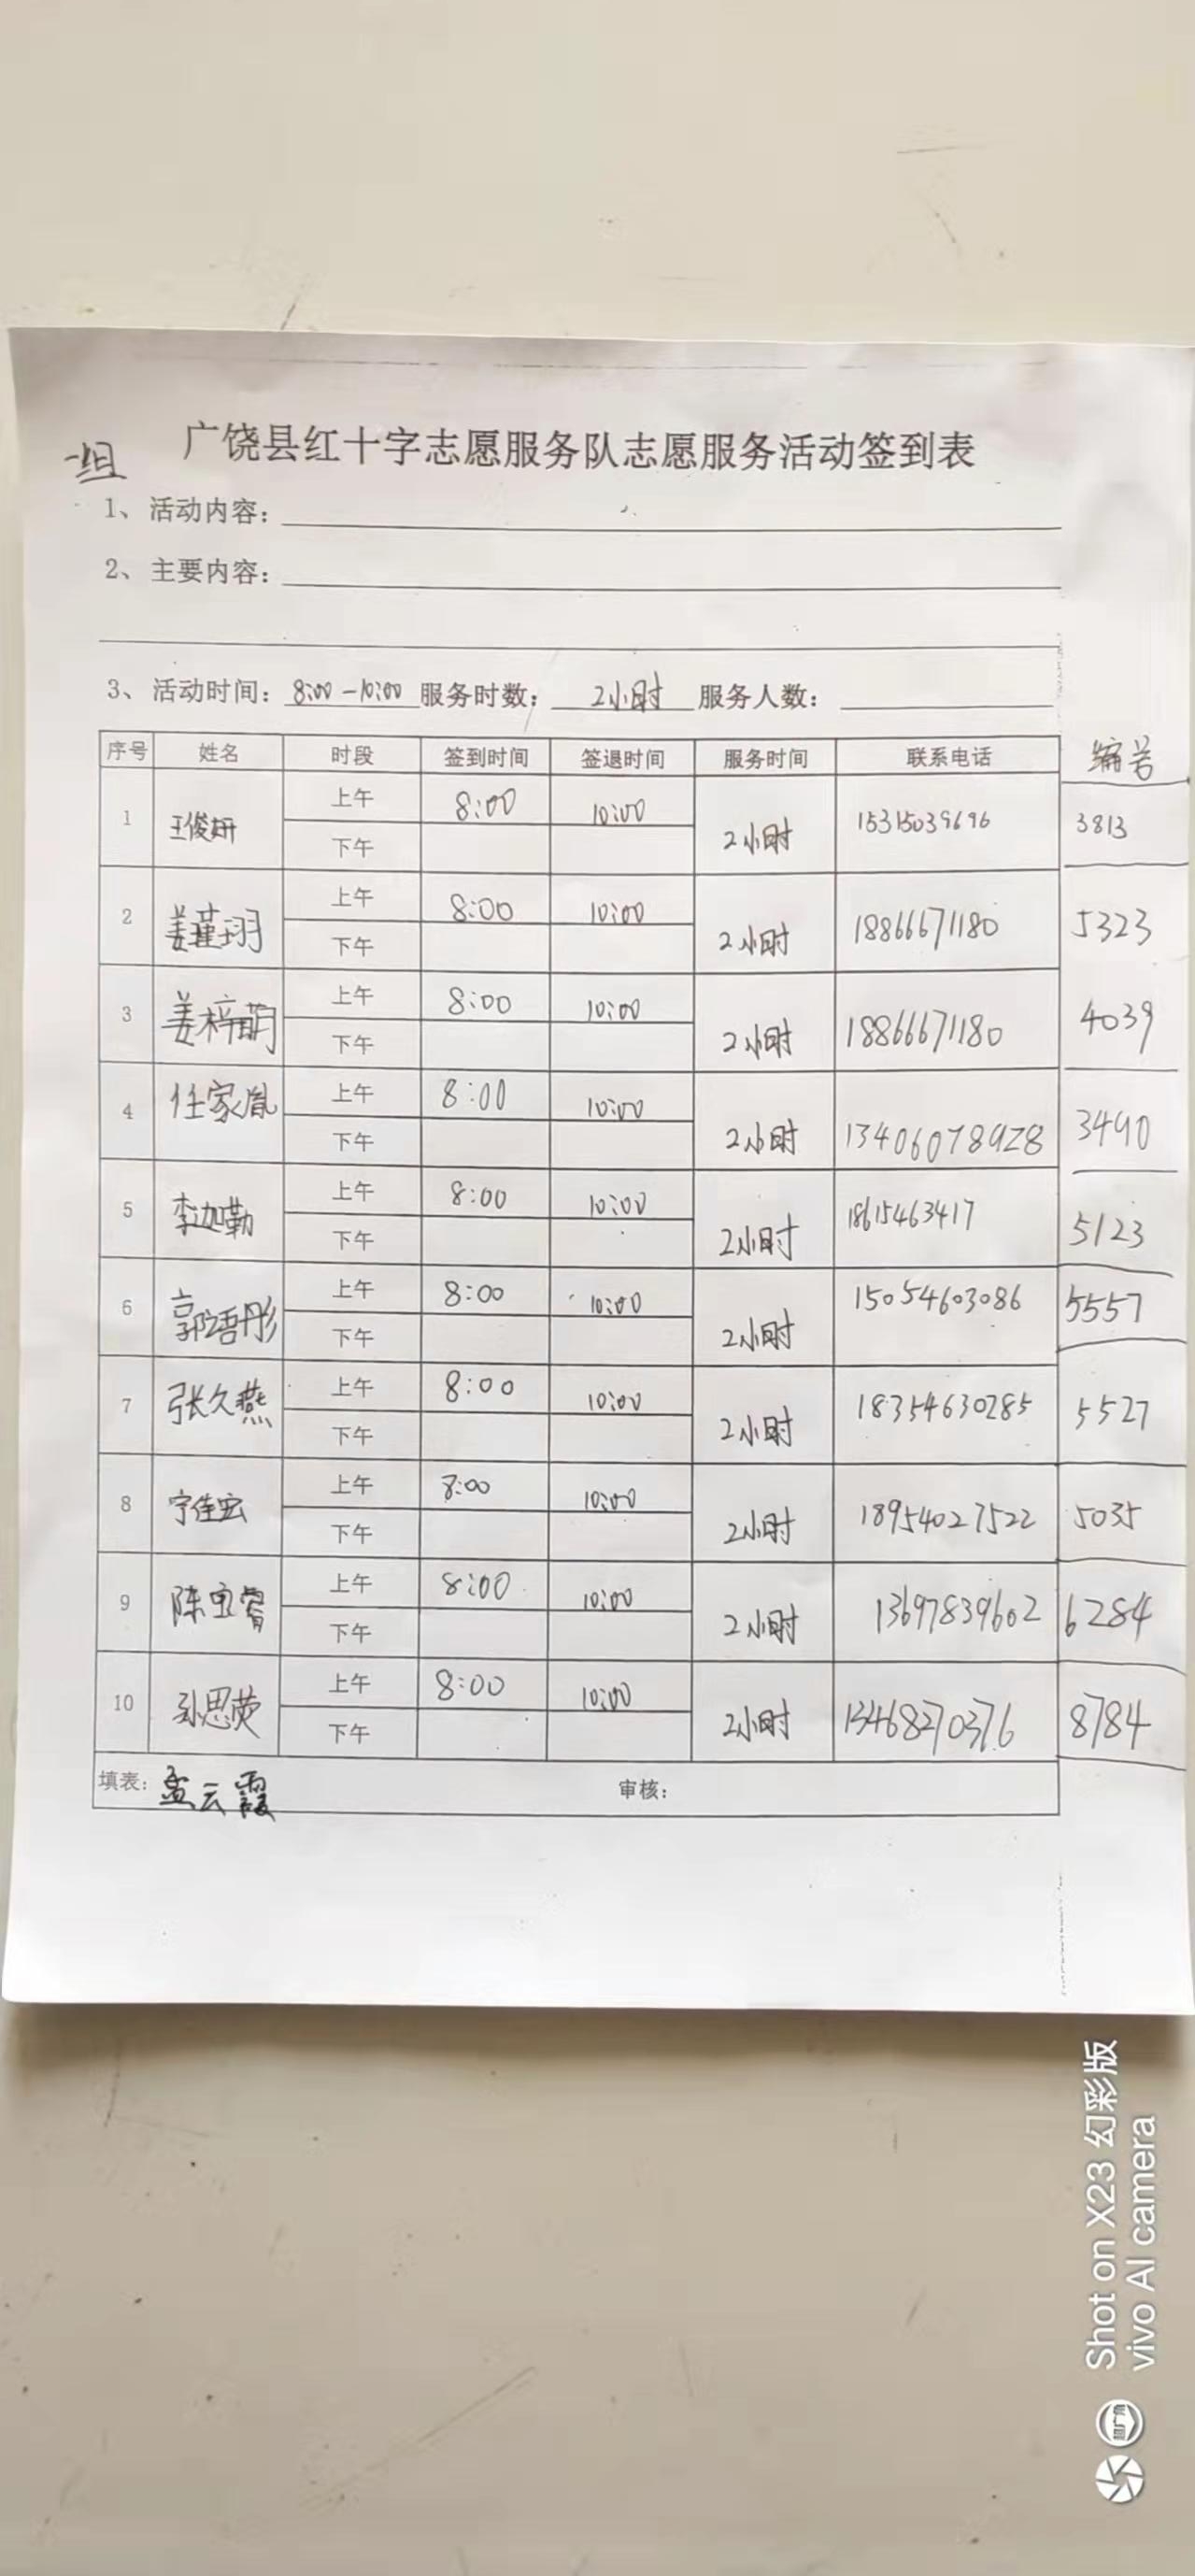 一组
广饶县红十字志愿服务队志愿服务活动签到表
1、活动内容：
2、主要内容：
3、活动时间：8:00-10:00 服务时数：2小时 服务人数：
序号 姓名 时段 签到时间 签退时间 服务时间 联系电话 编号
1 王俊妍 上午 8:00 10:00 2小时 15315039696 3813
下午
2 姜瑾玥 上午 8:00 10:00 2小时 18866671180 5323
下午
3 姜梓萌 上午 8:00 10:00 2小时 18866671180 4039
下午
4 任家胤 上午 8:00 10:00 2小时 13406078928 3490
下午
5 李迦勒 上午 8:00 10:00 2小时 18615463417 5123
下午
6 郭语彤 上午 8:00 10:00 2小时 15054603086 5557
下午
7 张久燕 上午 8:00 10:00 2小时 18354630285 5527
下午
8 宁佳宏 上午 8:00 10:00 2小时 18954027522 5035
下午
9 陈宜睿 上午 8:00 10:00 2小时 13697839602 6284
下午
10 孙思荧 上午 8:00 10:00 2小时 13468270376 8784
下午
填表：孟云霞 审核：
Shot on X23 幻彩版
vivo AI camera